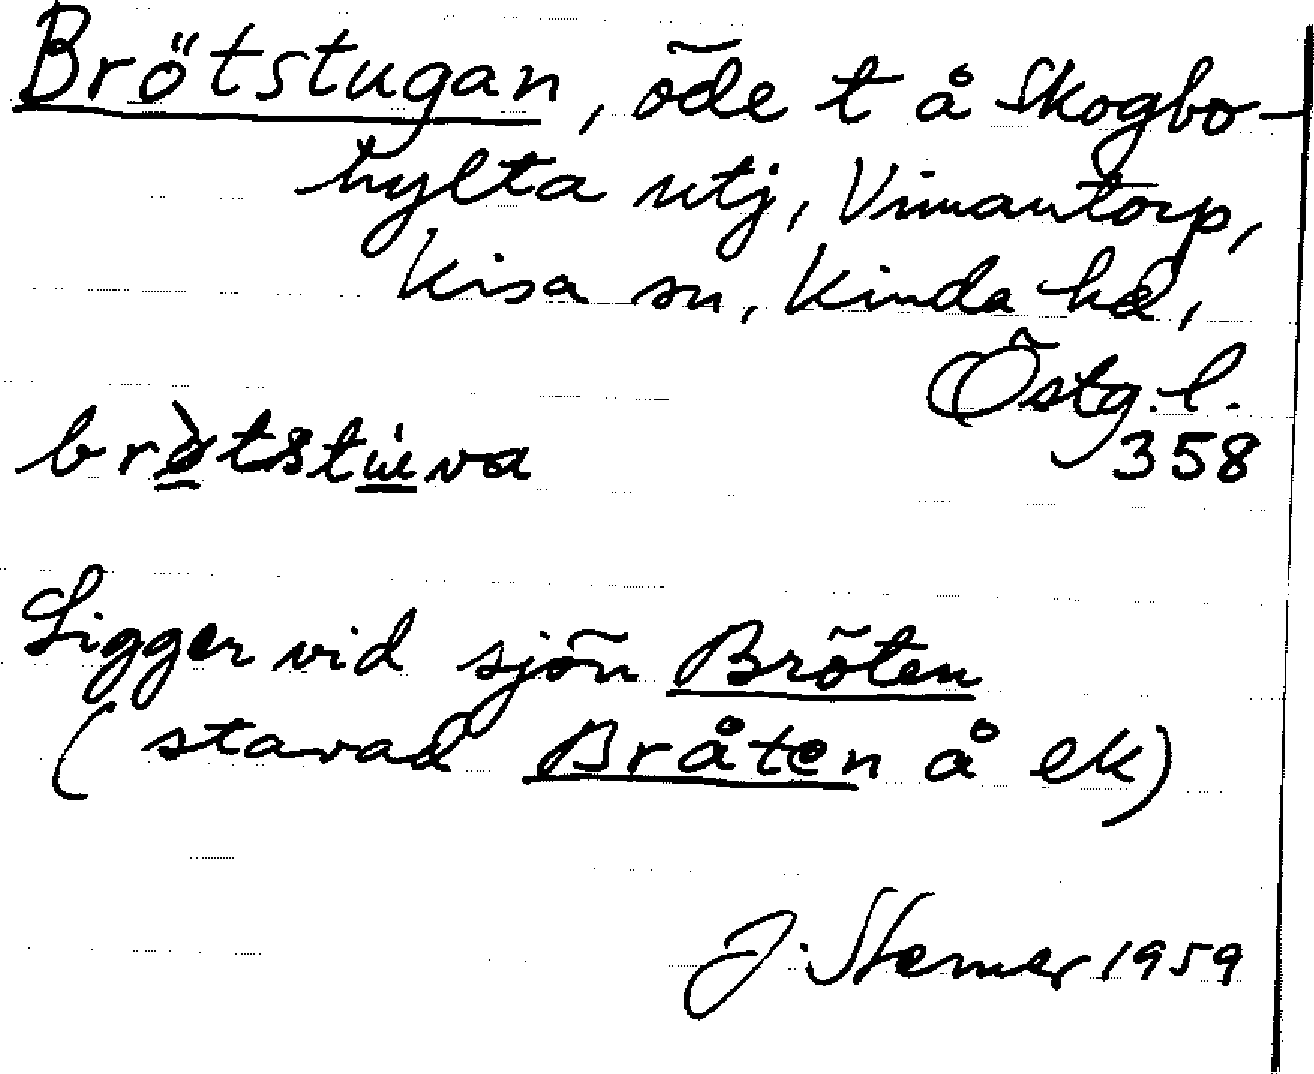 Brötstugan, öde t å Skogbo-
hylta utj, Vimantorp,
Kisa sn, Kinda hd,
Östg. l.
358
bròtstuva
Ligger vid sjön Bröten
(stavad Bråten å ek)
J. 1959